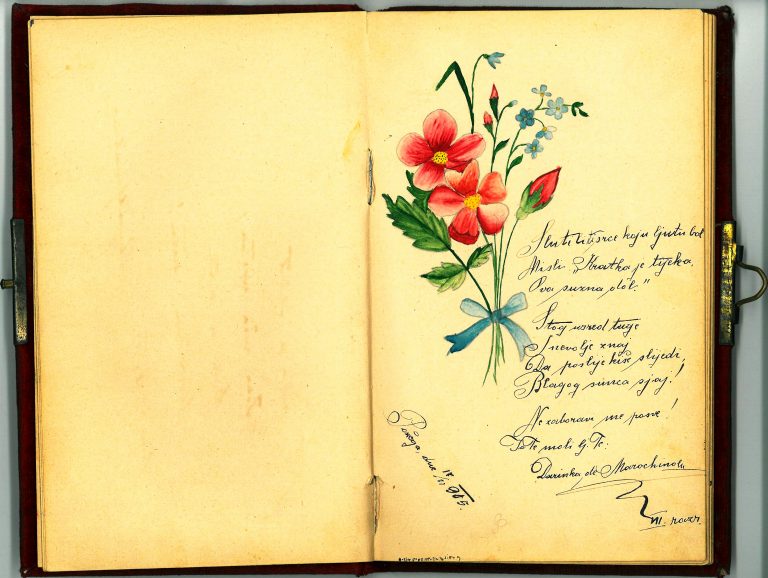 Sluti li ti srce koju ljutu bol
Misli „Kratka je tijeka,
Ova suzna dôl."
Stog usred tuge
I nevolje znaj
Da poslije kiše slijedi,
Blagog sunca sjaj!
Ne zaboravi me posve!
To Te moli lj. Te.
Darinka de Marochino
VII. razr.
Požega, dne 18/VI 905.